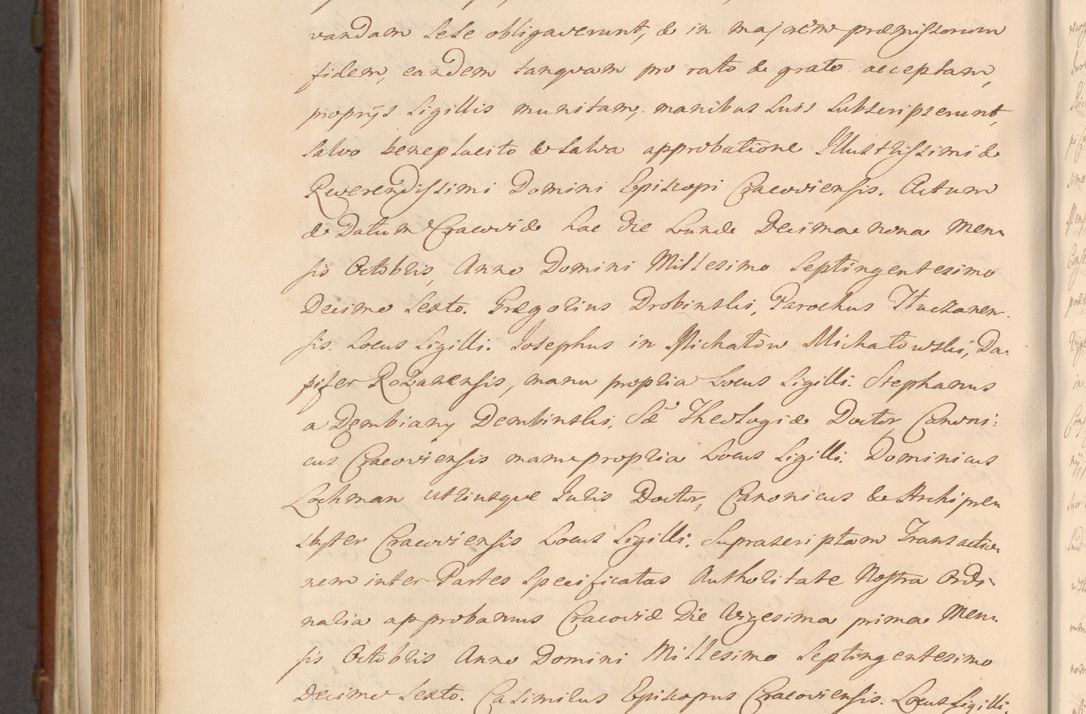 vandam sese obligaverunt, & in majorem præmissorum
fidem, eandem tanquam pro rato & grato acceptam,
proprijs sigillis munitam, manibus suis subscripserunt,
salvo beneplacito & salva approbatione Illustrissimi &
Reverendissimi Domini Episcopi Cracoviensis. Actum
& Datum Cracoviæ hac die Lunæ Decima nona Men-
sis Octobris, Anno Domini Millesimo Septingentesimo
Decimo Sexto. Gregorius Drobinski, Parochus Tłuczanen-
sis. Locus Sigilli. Josephus in Michałow Michałowski, Da-
pifer Rozanensis, manu propria Locus Sigilli. Stephanus
a Dembiany Dembinski, Sæ Theologiæ Doctor, Canoni:
cus Cracoviensis manu propria Locus Sigilli. Dominicus
Lochman utriusque Juris Doctor, Canonicus & Archipres-
byter Cracoviensis Locus Sigilli. Suprascriptam Transactio-
nem inter Partes specificatas Authoritate Nostra Ordi-
naria approbamus Cracoviæ Die Vigesima prima Men-
sis Octobris Anno Domini Millesimo Septingentesimo
decimo Sexto. Casimirus Episcopus Cracoviensis. Locus Sigilli.